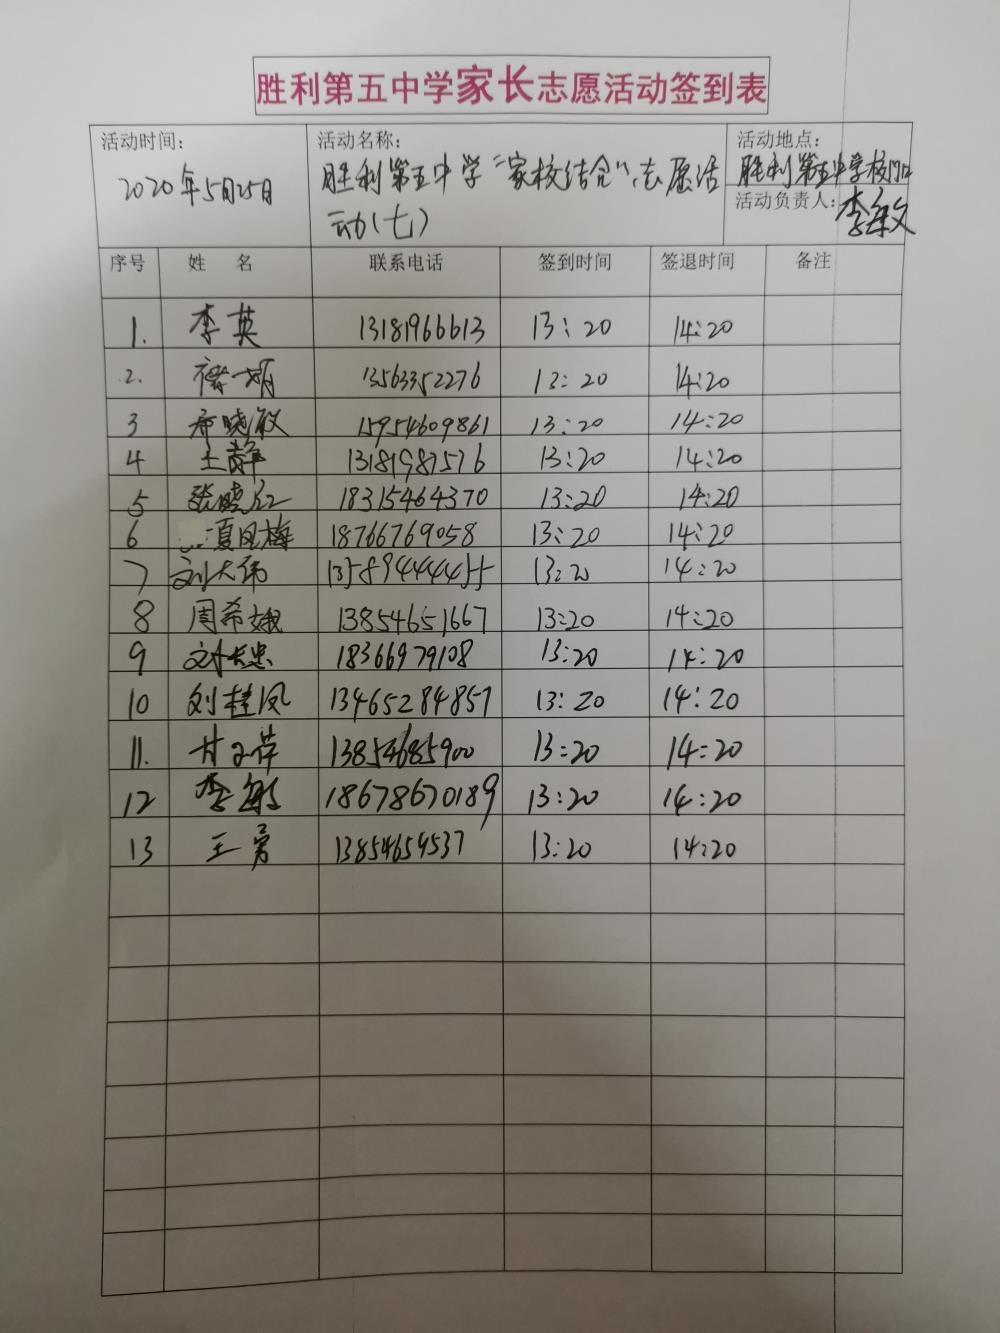 胜利第五中学家长志愿活动签到表
活动时间: 活动名称: 活动地点:
2020年5月25日 胜利第五中学“家校结合”志愿活 胜利第五中学校门口
动(七) 活动负责人: 李敏
序号 姓名 联系电话 签到时间 签退时间 备注
1. 李英 13181966613 13:20 14:20
2. 13563352276 13:20 14:20
3 晓敏 15954609861 13:20 14:20
4 王静 13181987576 13:20 14:20
5 张晓红 18315464370 13:20 14:20
6 夏凤梅 18766769058 13:20 14:20
7 刘大伟 13:20 14:20
8 周希娥 13854651667 13:20 14:20
9 18366979108 13:20 14:20
10 刘桂凤 13465284857 13:20 14:20
11. 13854685900 13:20 14:20
12 李敏 18678670189 13:20 14:20
13 王勇 13854654537 13:20 14:20